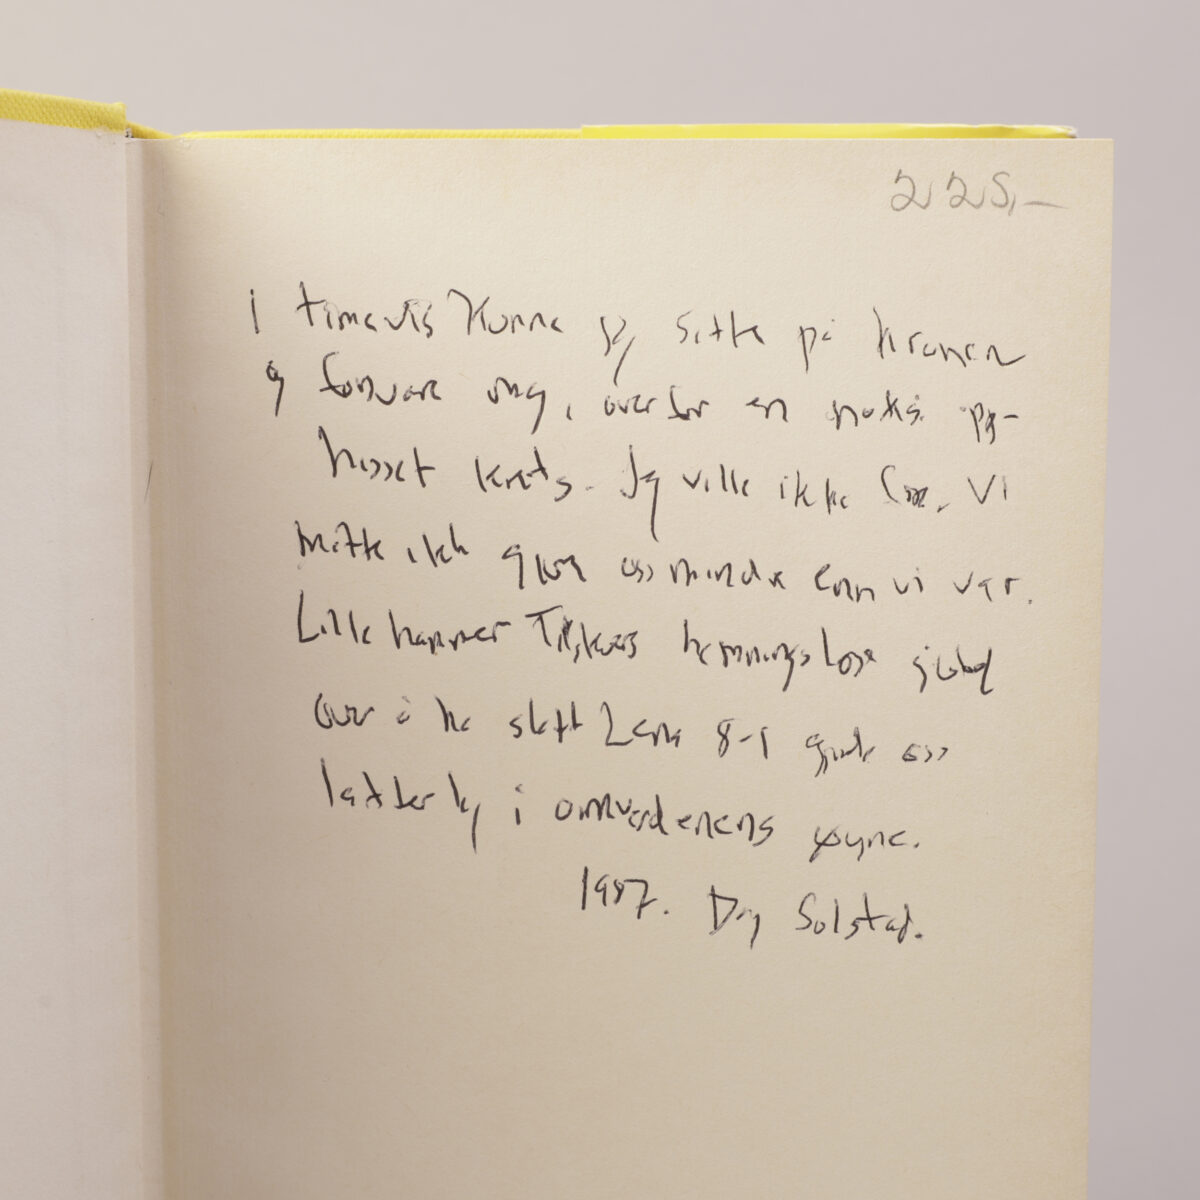 225,-
I timevis kunne jeg sitte på kranen
og forsvare meg, overfor en nokså opp-
hisset krets. Jeg ville ikke løe. Vi
måtte ikke gjøre oss mindre enn vi var.
Lillehammer Tilskuers hemningsløse jubel
over å ha slått Lena 8-1 gjorde oss
latterlig i omverdenens øyne.
1987. Dag Solstad.